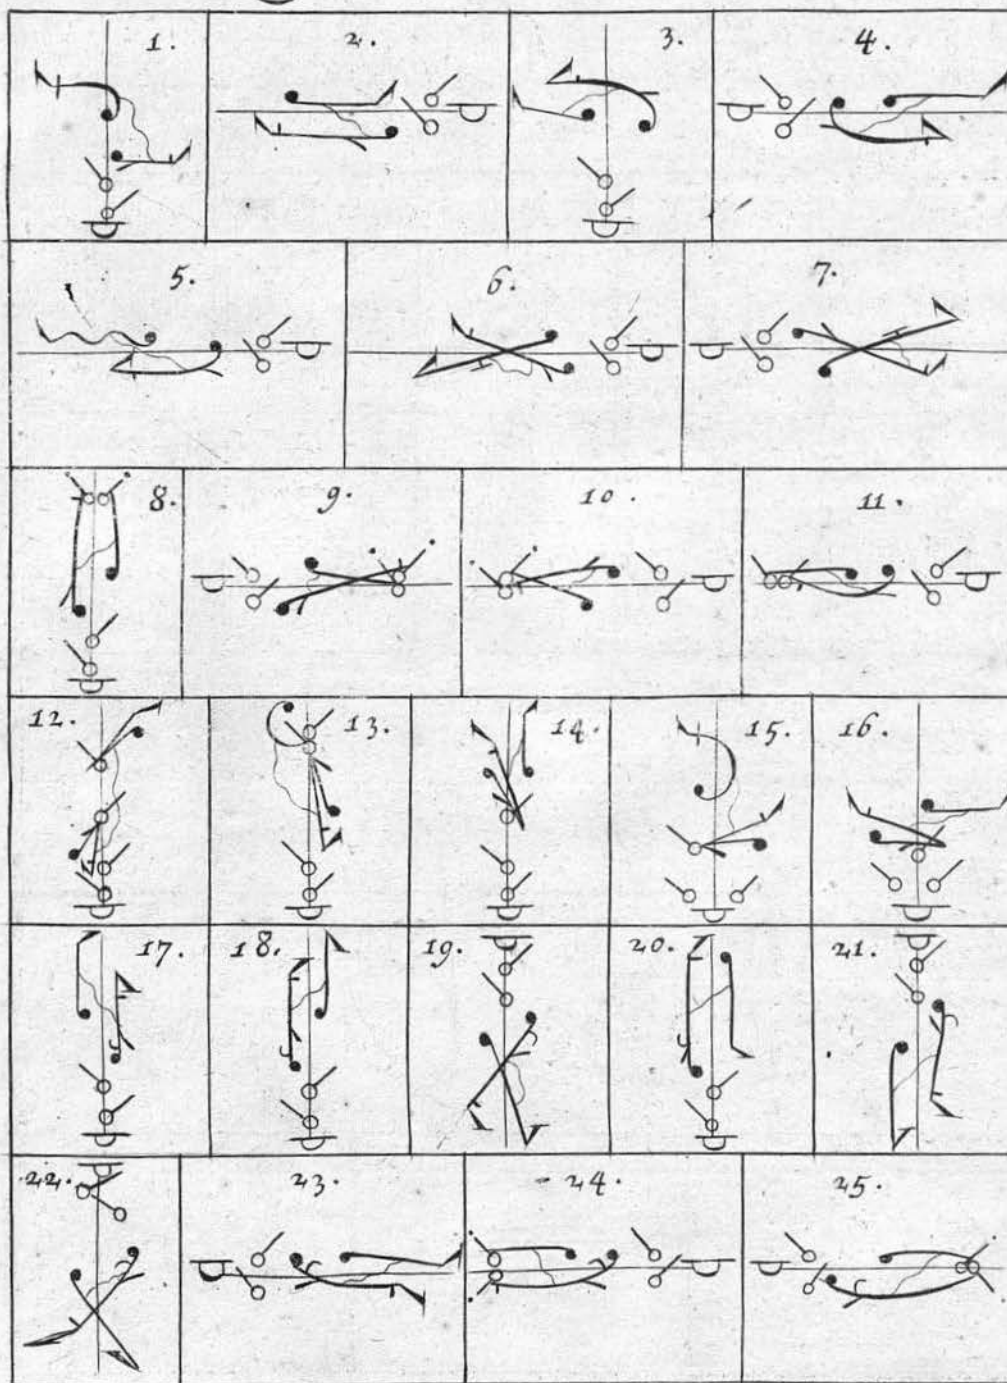 1. 2. 3. 4.
5. 6. 7.
8. 9. 10. 11.
12. 13. 14. 15. 16.
17. 18. 19. 20. 21.
22. 23. 24. 25.